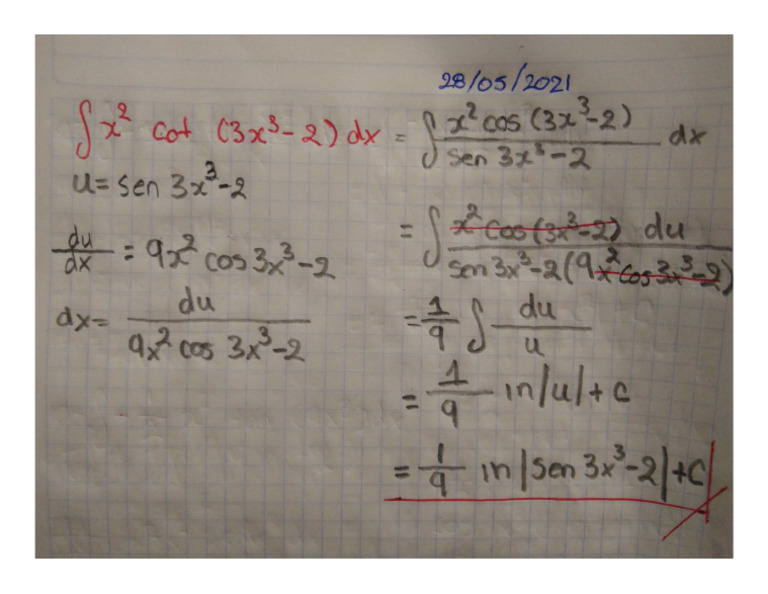 28/05/2021
∫ x² cot (3x³-2) dx = ∫ x² cos (3x³-2) / sen 3x³-2 dx
u = sen 3x³-2
du/dx = 9x² cos 3x³-2
dx = du / 9x² cos 3x³-2
= ∫ x² cos (3x³-2) du / sen 3x³-2 (9x² cos 3x³-2)
= 1/9 ∫ du/u
= 1/9 in |u| + c
= 1/9 in |sen 3x³-2| + c